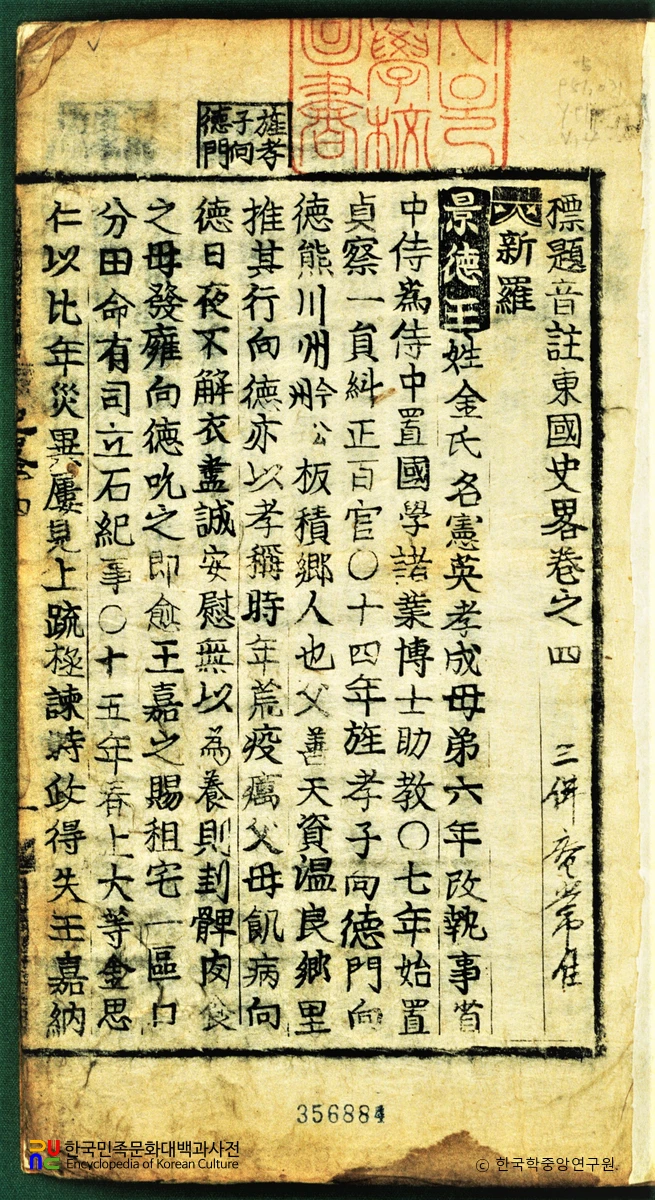 旌孝
子向
德門
學校
圖書
標題音註東國史畧卷之四
新羅
景德王姓金氏名憲英孝成母弟六年改執事省
中侍爲侍中置國學諸業博士助教〇七年始置
貞察一貟糾正百官〇十四年旌孝子向德門向
德熊川州今公州板積鄉人也父善天資温良鄉里
推其行向德亦以孝稱時年荒疫癘父母飢病向
德日夜不解衣盡誠安慰無以為養則刲髀肉食
之母發雍向德吮之即愈王嘉之賜租宅一區口
分田命有司立石紀事〇十五年春上大等金思
仁以比年災異屢見上疏極諫時政得失王嘉納
356884
한국민족문화대백과사전
Encyclopedia of Korean Culture
© 한국학중앙연구원